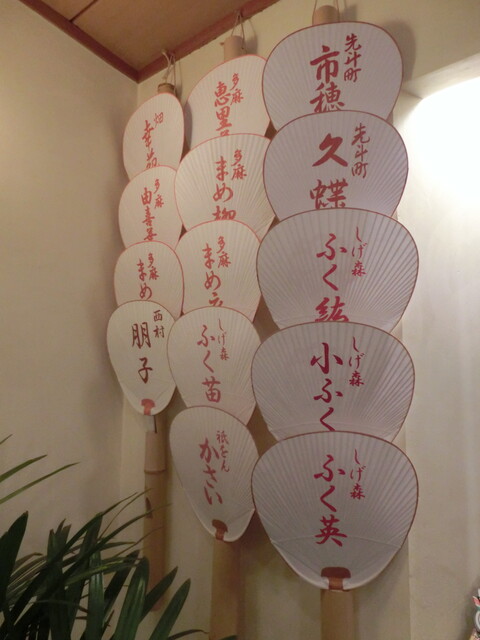 先斗町
市穂
先斗町
久蝶
しげ森
ふく紘
しげ森
小ふく
しげ森
ふく英
多麻
恵里
多麻
まめ柳
多麻
まめ
しげ森
ふく苗
祇をん
かさい
畑
幸
多麻
由喜
多麻
まめ
西村
朋子